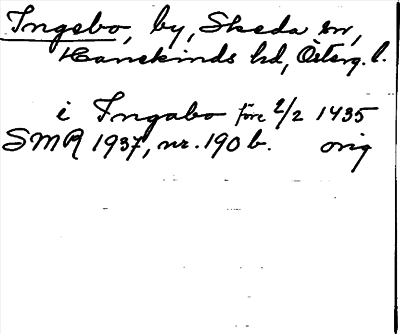 Ingebo, by, Skeda sn,
Hanekinds hd, Österg. l.
i Ingabo före 2/2 1435
SMR 1937, nr. 190 b. orig